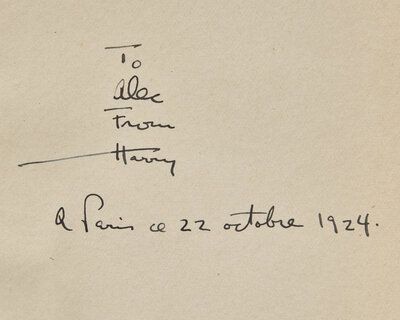 To
Alec
From
Harry
A Paris ce 22 octobre 1924.